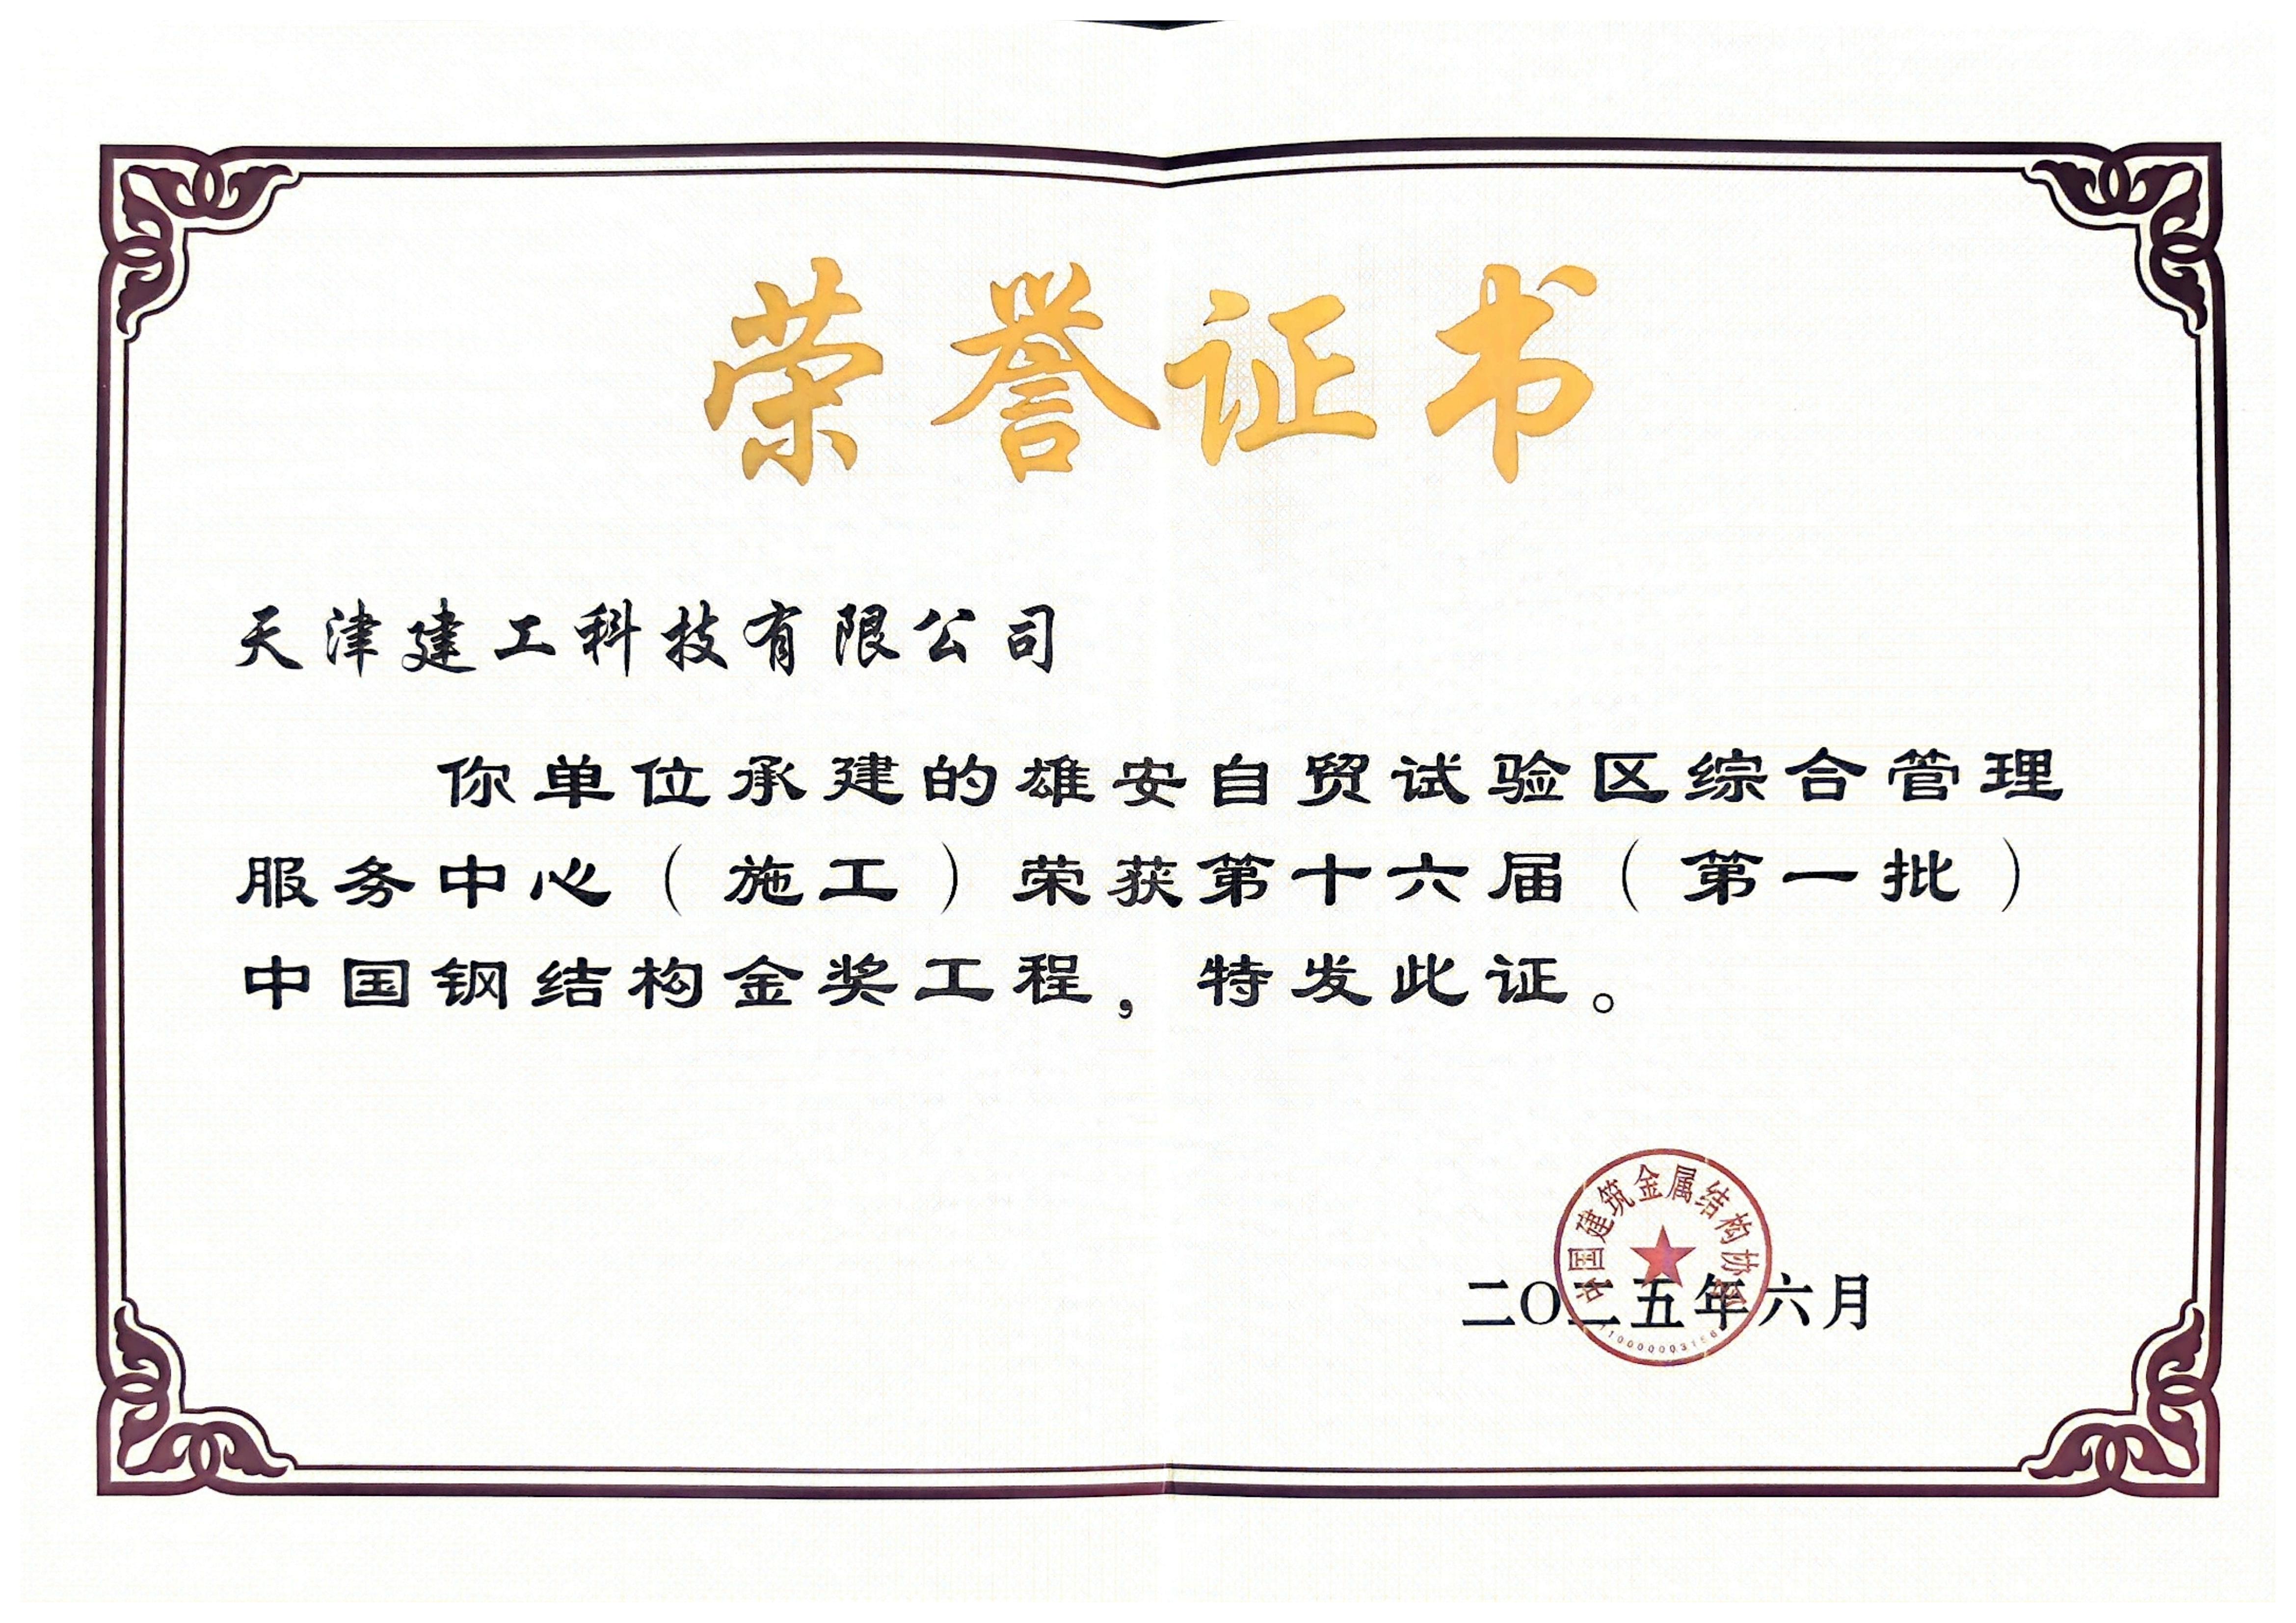 荣誉证书
天津建工科技有限公司
你单位承建的雄安自贸试验区综合管理
服务中心（施工）荣获第十六届（第一批）
中国钢结构金奖工程，特发此证。
中国建筑金属结构协会
二〇二五年六月